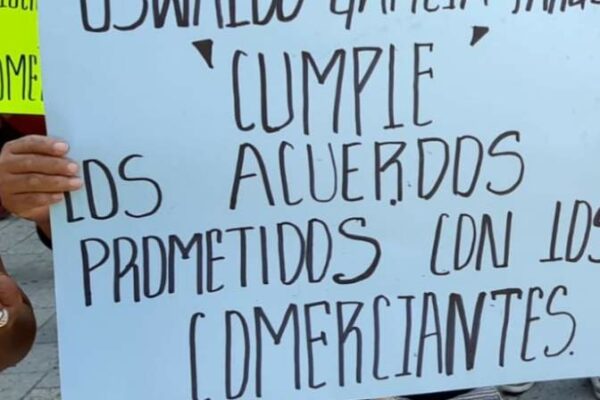 OSWALDO GARCIA
"CUMPLE"
LOS ACUERDOS
PROMETIDOS CON LOS
COMERCIANTES.